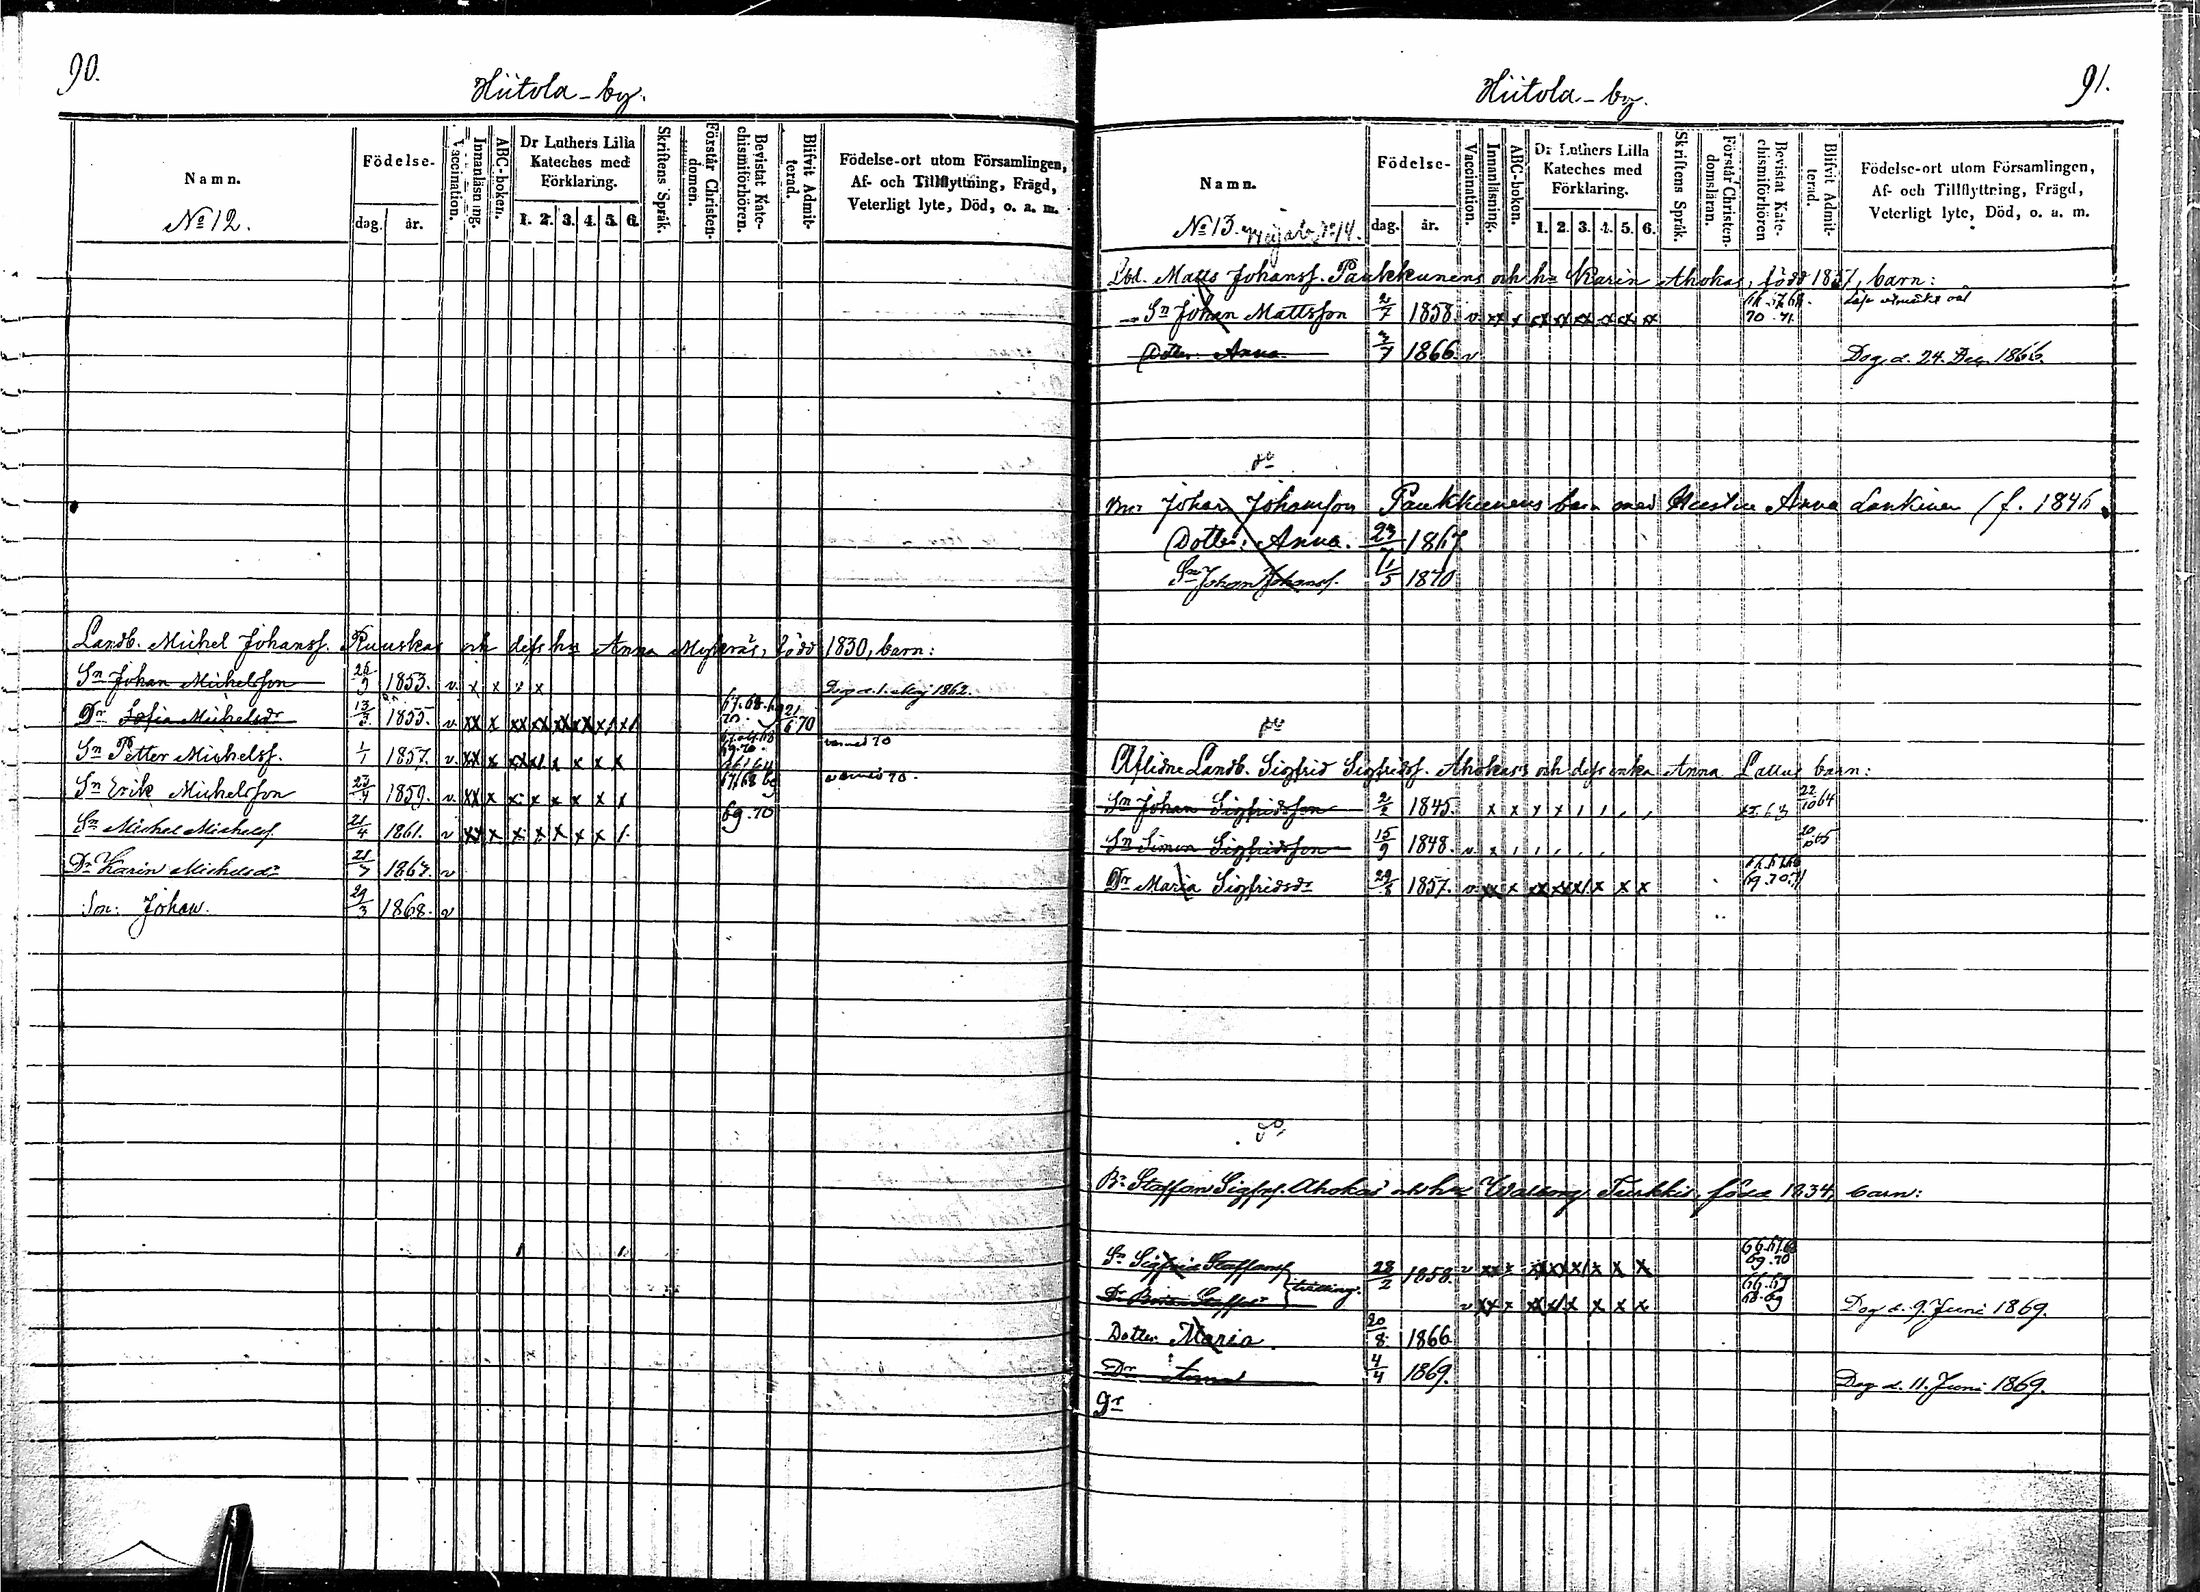 90.
Hiitola-by.
Namn.
No 12.
Födelse-
dag. år.
Vaccination.
Innanläsning.
ABC-boken.
Dr Luthers Lilla
Kateches med
Förklaring.
1. 2. 3. 4. 5. 6.
Skriftens Språk.
Förstår Christen-
domen.
Bevistat Kate-
chismiförhören.
Blifvit Admit-
terad.
Födelse-ort utom Församlingen,
Af- och Tillflyttning, Frägd,
Veterligt lyte, Död, o. a. m.
Landb. Michel Johanss. Ruuskas och dess hu Anna Mykrä, född 1830, barn:
Sn Johan Michelsson 26/9 1853. v. x x x x Dog d. 1. Maj 1862.
Dr Sofia Michelsdr 13/3 1855. v xx x xx xx xx xx x/ x/ 67. 68. 69 70. 21/6 70
Sn Petter Michelss. 1/1 1857. v. xx x xx x/ x x x x 69. 70.
Sn Erik Michelsson 23/4 1859. v. xx x x x x x x x 67. 68 69
Sn Michel Michelss. 21/4 1861. v xx x x x x x x /. 69. 70
Dr Karin Michelsdr 21/7 1863. v
Son: Johan. 29/3 1868. v
91.
Hiitola-by.
Namn.
No 13. No 14.
Födelse-
dag. år.
Vaccination.
Innanläsning.
ABC-boken.
Dr Luthers Lilla
Kateches med
Förklaring.
1. 2. 3. 4. 5. 6.
Skriftens Språk.
Förstår Christen-
domsläran.
Bevistat Kate-
chismiförhören
Blifvit Admit-
terad.
Födelse-ort utom Församlingen,
Af- och Tillflyttning, Frägd,
Veterligt lyte, Död, o. a. m.
Lbd. Matts Johanss. Paukkunens och hu Karin Ahokas, född 1837, barn:
Sn Johan Mattsson 2/7 1858. v xx x xx xx xx x x x 66. 67. 68. 70. 71
Dotter Anna 7/7 1866 v Dog d. 24. Dec. 1866.
do
Br Johan Johansson Paukkunens barn med Hustru Anna Lankinen (f. 1846
Dotter: Anna. 23/7 1867
Sn Johan Johanss. 11/5 1870
do
Aflidne Landb. Sigfrid Sigfridss. Ahokas's och dess enka Anna Lattus barn:
Sn Johan Sigfridsson 2/2 1845. x x x x 22/10 64
Sn Simon Sigfridsson 15/9 1848. v x
Dr Maria Sigfridsdr 29/3 1857. v xx x xx xx x/ x x x 69. 70. 71
do
Br Staffan Sigfss. Ahokas och hu Walborg Turkkis, född 1834, barn:
Sn Sigfrid Staffanss 28/2 1858. v xx x x/ xx x/ x x x 66. 67. 68 69. 70
Dr Staffsdr tvilling. v xx x xx x/ x x x x 66. 67 68. 69 Dog d. 9. Juni 1869.
Dotter: Maria. 20/8 1866
Dr Anna 4/4 1869. Dog d. 11. Juni 1869.
Dr